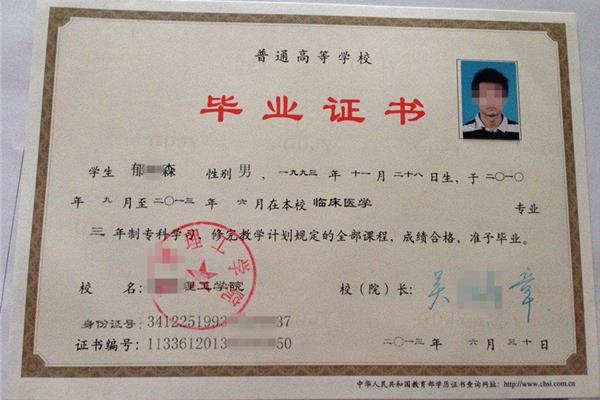 普通高等学校
毕业证书
学生 郁 森 性别 男，一九九三年 十一月 二十八日生，于二〇一〇
年 九 月至二〇一三年 六 月在本校 临床医学 专业
三 年制专科学习，修完教学计划规定的全部课程，成绩合格，准予毕业。
校 名： 理工学院 校（院）长： 吴 章
理工学院
身份证号：3412251993 37
证书编号：1133612013 50 二〇一三年 六月三十日
中华人民共和国教育部学历证书查询网址：http://www.chsi.com.cn